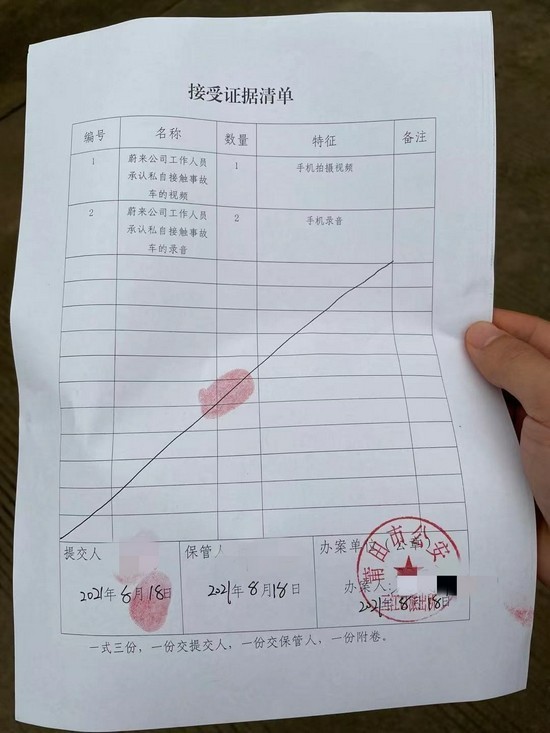 接受证据清单
编号 名称 数量 特征 备注
1 蔚来公司工作人员 1 手机拍摄视频
承认私自接触事故
车的视频
2 蔚来公司工作人员 2 手机录音
承认私自接触事故
车的录音
提交人 保管人 办案单位 公章
莆田市公安
办案人:
2021年8月18日 2021年8月18日 2021 8 18日
派出
一式三份,一份交提交人,一份交保管人,一份附卷。